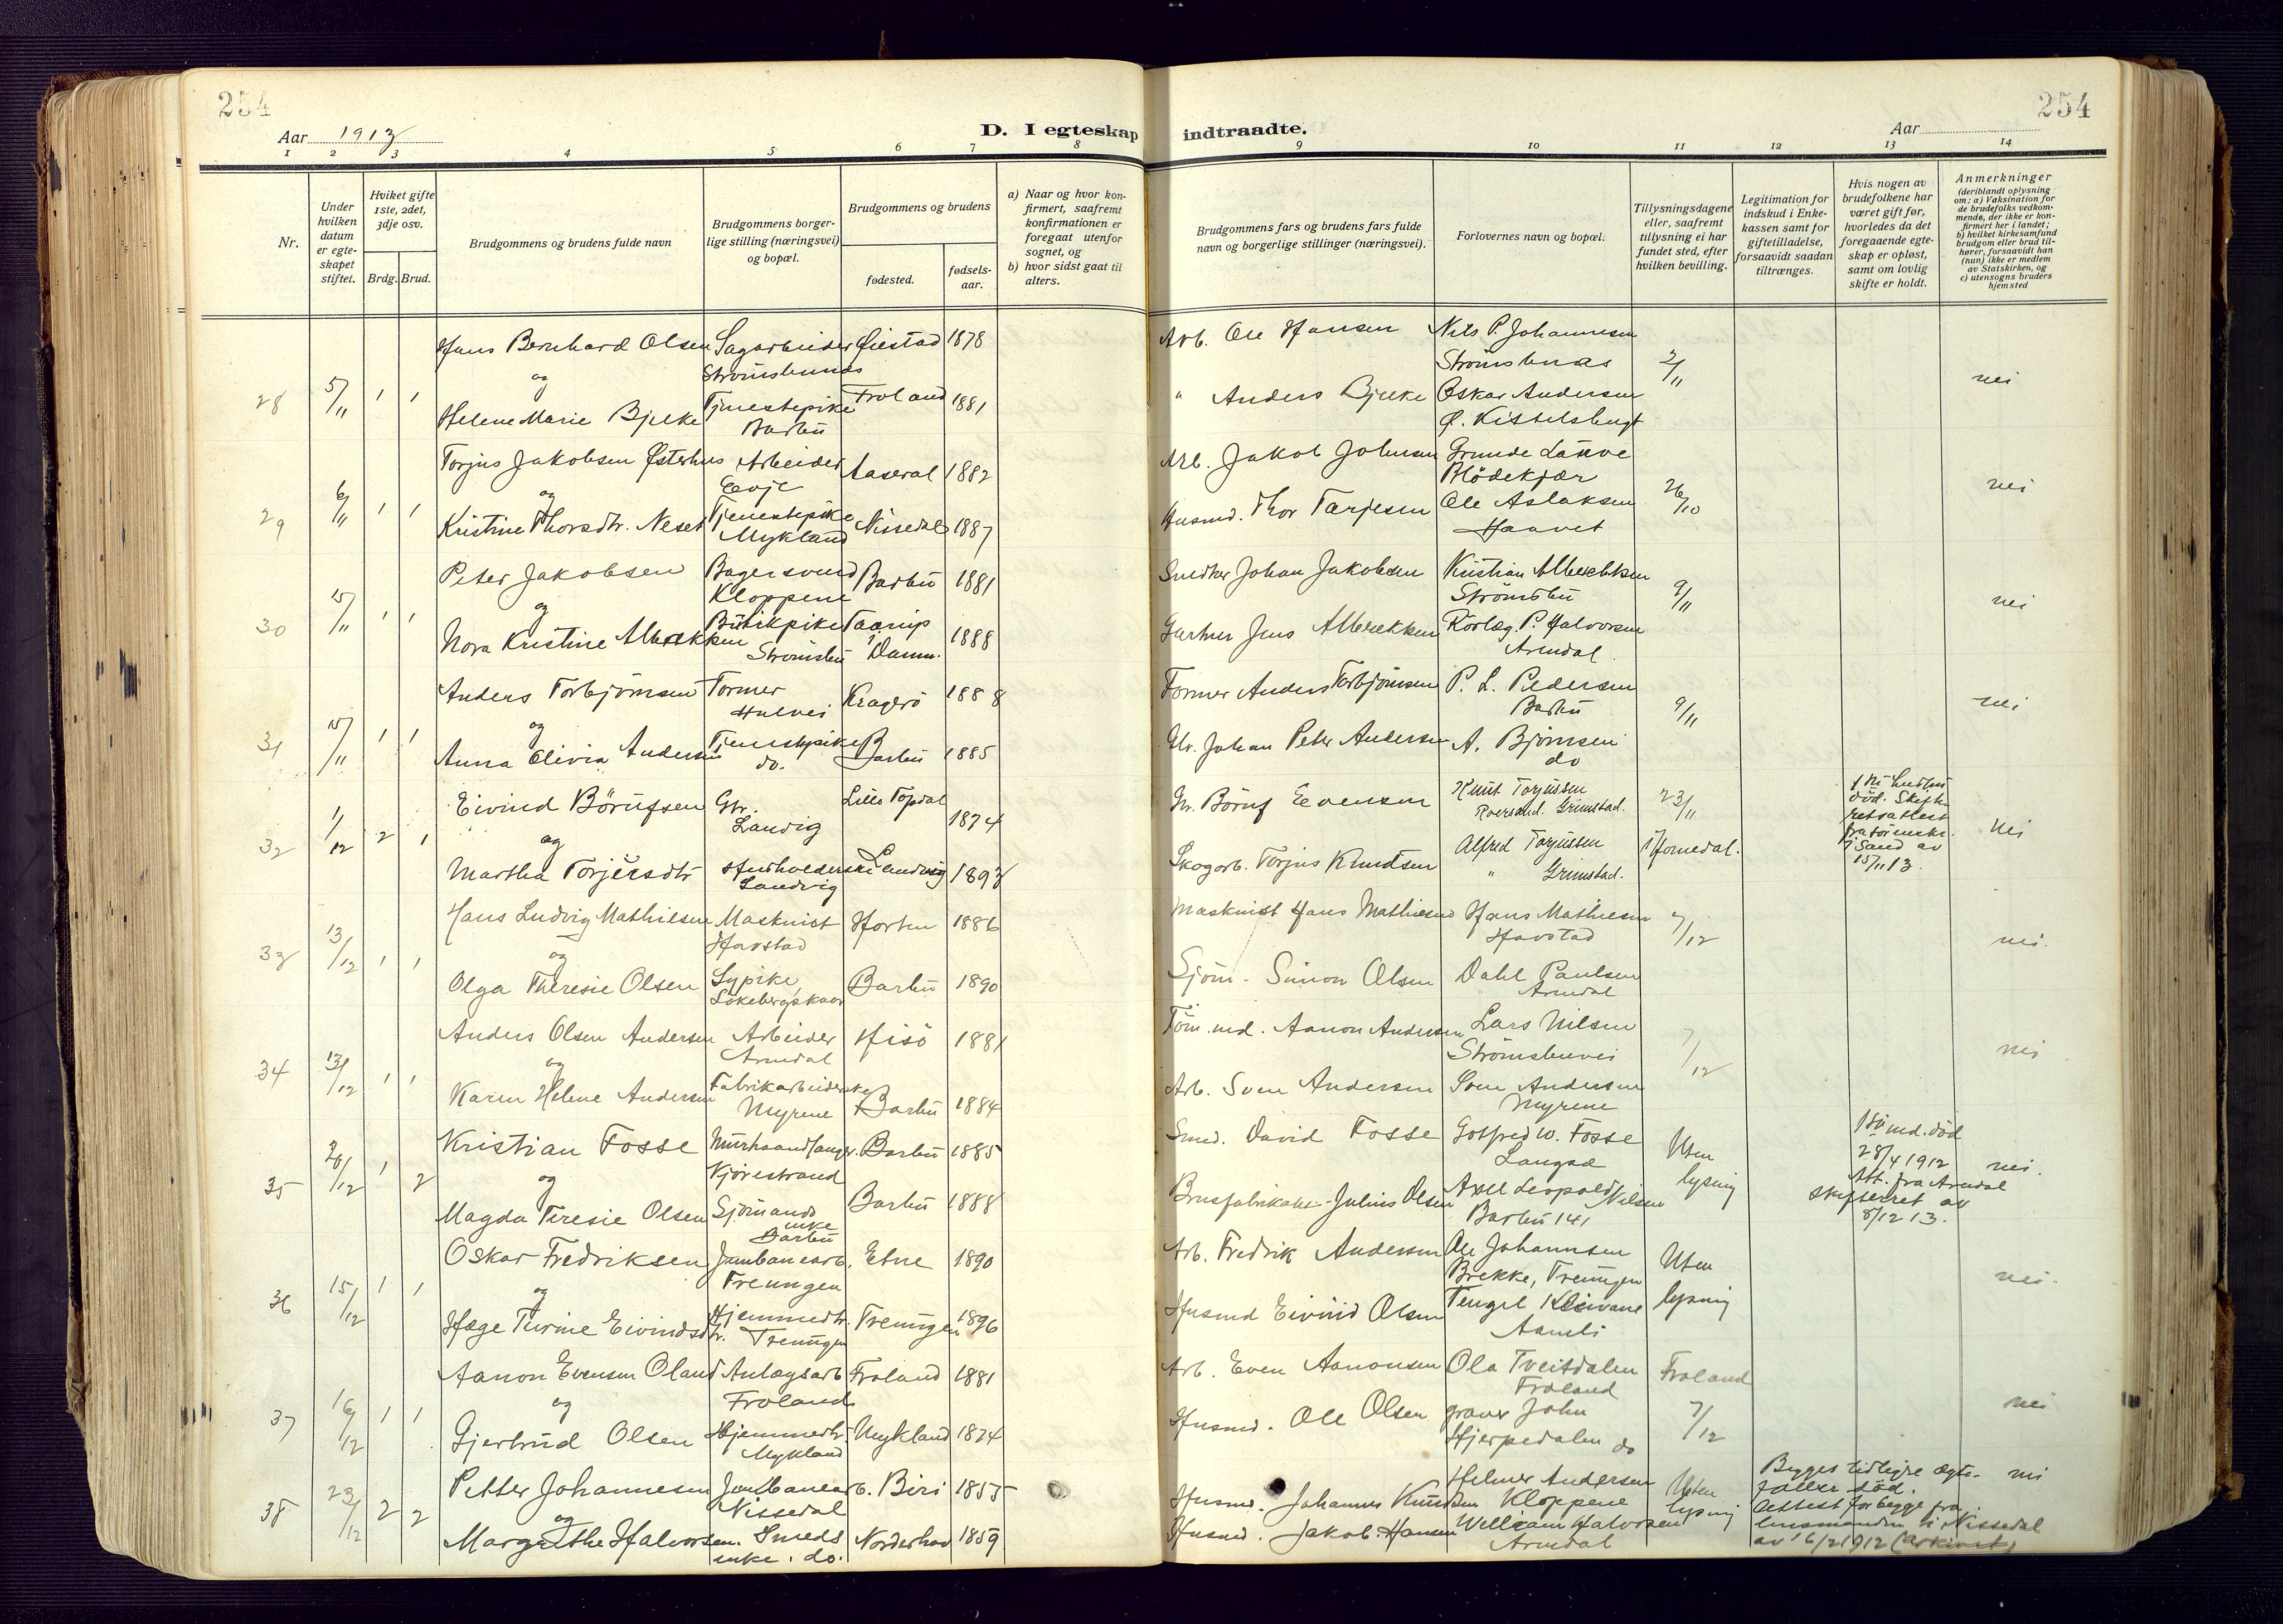 254
Aar 1913
D. I egteskap
indtraadte.
Aar
254
1 2 3 4 5 6 7 8 9 10 11 12 13 14
Nr.
Under hvilken datum er egteskapet stiftet.
Hviket gifte 1ste, 2det, 3dje osv.
Brdg. Brud.
Brudgommens og brudens fulde navn
Brudgommens borgerlige stilling (næringsvei) og bopæl.
Brudgommens og brudens
fødested.
fødselsaar.
a) Naar og hvor konfirmert, saafremt konfirmationen er foregaat utenfor sognet, og
b) hvor sidst gaat til alters.
Brudgommens fars og brudens fars fulde navn og borgerlige stillinger (næringsvei).
Forlovernes navn og bopæl.
Tillysningsdagene eller, saafremt tillysning ei har fundet sted, efter hvilken bevilling.
Legitimation for indskud i Enkekassen samt for giftetilladelse, forsaavidt saadan tiltrænges.
Hvis nogen av brudefolkene har været gift før, hvorledes da det foregaaende egteskap er opløst, samt om lovlig skifte er holdt.
Anmerkninger
(deriblandt oplysning om: a) Vaksination for de brudefolks vedkommende, der ikke er konfirmert her i landet; b) hvilket kirkesamfund brudgom eller brud tilhører, forsaavidt han (hun) ikke er medlem av Statskirken, og c) utensogns bruders hjemsted
28 5/11 1 1
Hans Bernhard Olsen Sagarbeider Øiestad 1878
og
Helene Marie Bjelke Tjenestepike Barbu Froland 1881
Arb. Ole Hansen
" Anders Bjelke
Nils P. Johannesen
Strömsbunas
Oskar Andersen
Ø. Kittelsbugt
2/11
nei
29 6/11 1 1
Torjus Jakobsen Østerhus Arbeider Evje Aaseral 1882
og
Kristine Thorsdtr. Neset Tjenestepike Mykland Nissedal 1887
Arb. Jakob Johnsen
Husmd. Thor Tarjesen
Grunde Lauve
Blödekjær
Ole Aslaksen
Haavet
26/10
nei
30 15/11 1 1
Peter Jakobsen Bagersvend Kloppene Barbu 1881
og
Nora Kristine Albrektsen Butikpike Strömsbu Taarup i Danm. 1888
Snedker Johan Jakobsen
Gartner Jens Albrektsen
Kristian Albrechtsen
Strömsbu
Rörlæg. P. Halvorsen
Arendal
9/11
nei
31 15/11 1 1
Anders Torbjörnsen Former Kragerö 1888
og
Anna Elivia Andersen Tjenestepike do. Barbu 1885
Former Anders Torbjörnsen
Gbr. Johan Peter Andersen
P. L. Pedersen
Barbu
A. Björnsen
do
9/11
nei
32 1/12 2 1
Eivind Börufsen Gbr. Landvig Lille Topdal 1874
og
Martha Torjersdtr Husholderske Landvig Landvig 1893
Gr. Böruf Eevensen
Skogarb. Torjus Knudsen
Knut Torjussen
Roersand. Grimstad.
Alfred Torjussen
" Grimstad.
23/11
i Homedal.
15/11 13.
nei
33 13/12 1 1
Hans Ludvig Mathiesen Maskinist Havstad Horten 1886
og
Olga Theresie Olsen Sypike, Barbu 1890
Maskinist Hans Mathiesen
Sjöm. Simon Olsen
Hans Mathiesen
Havstad
Dahl Paulsen
Arendal
7/12
nei.
34 13/12 1 1
Anders Olsen Andersen Arbeider Arendal Hisö 1881
og
Karen Helene Andersen Fabrikarbeiderske Myrene Barbu 1884
Töm.md. Aanon Andersen
Arb. Sven Andersen
Lars Nilsen
Strömsbuvei
Sven Andersen
Myrene
7/12
nei
35 20/12 1 2
Kristian Fosse Murhaandlanger. Kjörestrand Barbu 1885
og
Magda Teresie Olsen Sjömands enke Barbu Barbu 1888
Smed. David Fosse
Brusfabrikant Julius Olsen
Gotfred W. Fosse
Langsæ
Axel Leopold Nilsen
Barbu 141
Uten lysning
1ste md. död
28/4 1912
Att. fra Arendal
skifteret av
8/12 13.
nei.
36 15/12 1 1
Oskar Fredriksen Jernbanearb. Treungen Etne 1890
og
Hæge Turine Eivindsdtr. Hjemmedtr. Treungen Treungen 1896
Arb. Fredrik Andersen
Husmd Eivind Olsen
Ole Johannsen
Brekke, Treungen
Tengel Kleivane
Aamli
Uten lysning
nei.
37 16/12 1 1
Aanon Evensen Oland Anlægsarb Froland Froland 1881
og
Gjertrud Olsen Hjemmedtr. Mykland Mykland 1874
Arb. Even Aanonsen
Husmd. Ole Olsen
Ola Tveitdalen
Froland
graver John
Hjerpedalen do
Froland
7/12
nei
38 23/12 2 2
Petter Johannesen Jernbanearb. Nissedal Biri 1855
og
Margrethe Halvorsen. Smeds enke. do. Norderhov 1859
Husmd. Johannes Knudsen
Husmd. Jakob Hansen
Helmer Andersen
Kloppene
William Halvorsen
Arendal
Uten lysning
Begges tidligre ægtefæller död.
Attest for begge fra
lensmanden i Nissedal
av 16/2 1912 (arkivet)
nei